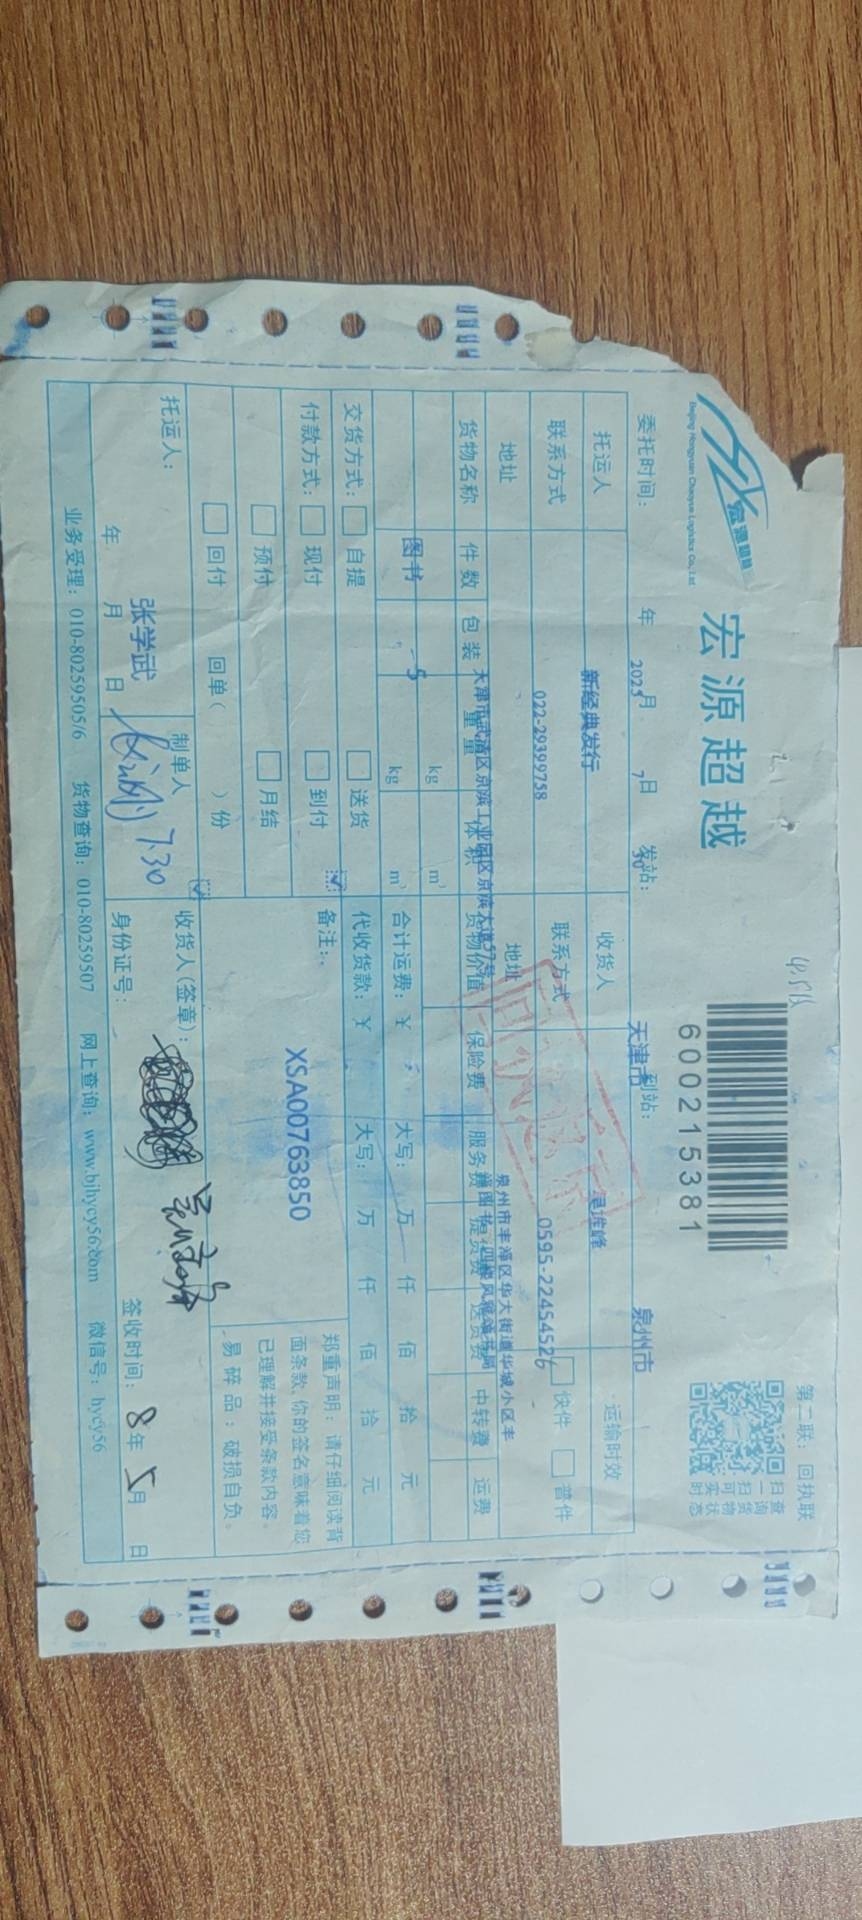 宏源超越
Beijing Hongyuan Chaoyue Logistics Co., Ltd
宏源超越
600215381
第二联：回执联
扫一扫可实时
查询货物状态
委托时间： 年 2025 月 7 日 30 发站： 天津市 到站： 泉州市
托运人 新经典发行 收货人 运输时效
联系方式 022-29399758 联系方式 0595-22454526 快件 普件
地址 天津市武清区京滨工业园区京滨大道 地址 泉州市丰泽区华大街道华城小区丰
货物名称 件数 包装 重量 体积 货物价值 保险费 服务费 提货费 送货费 中转费 运费
kg m³
图书 5 kg m³ 合计运费：￥ 大写： 万 仟 佰 拾 元
交货方式： 自提 送货 代收货款：￥ 大写： 万 仟 佰 拾 元
付款方式： 现付 到付 备注：
预付 月结 XSA00763850
回付 回单（ ）份
郑重声明：请仔细阅读背
面条款，你的签名意味着您
已理解并接受条款内容。
易碎品：破损自负。
托运人： 张学武 制单人 7.30 收货人(签章)：
年 月 日 身份证号： 签收时间： 8年 5月 日
业务受理：010-80259505/6 货物查询：010-80259507 网上查询：www.bjhycy56.com 微信号：hycy56